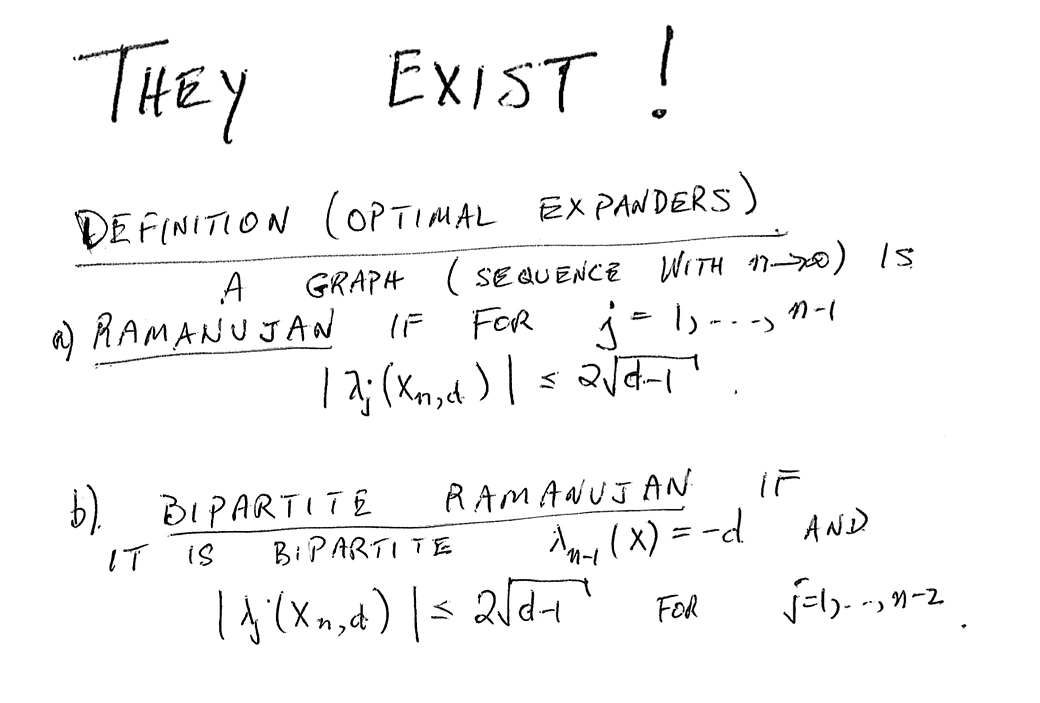 THEY EXIST!
DEFINITION (OPTIMAL EXPANDERS).
A GRAPH (SEQUENCE WITH n→∞) IS
a) RAMANUJAN IF FOR j = 1, ..., n-1
|λj(Xn,d)| ≤ 2√d-1.
b). BIPARTITE RAMANUJAN IF
IT IS BIPARTITE λn-1(X) = -d AND
|λj(Xn,d)| ≤ 2√d-1 FOR j=1,..,n-2.